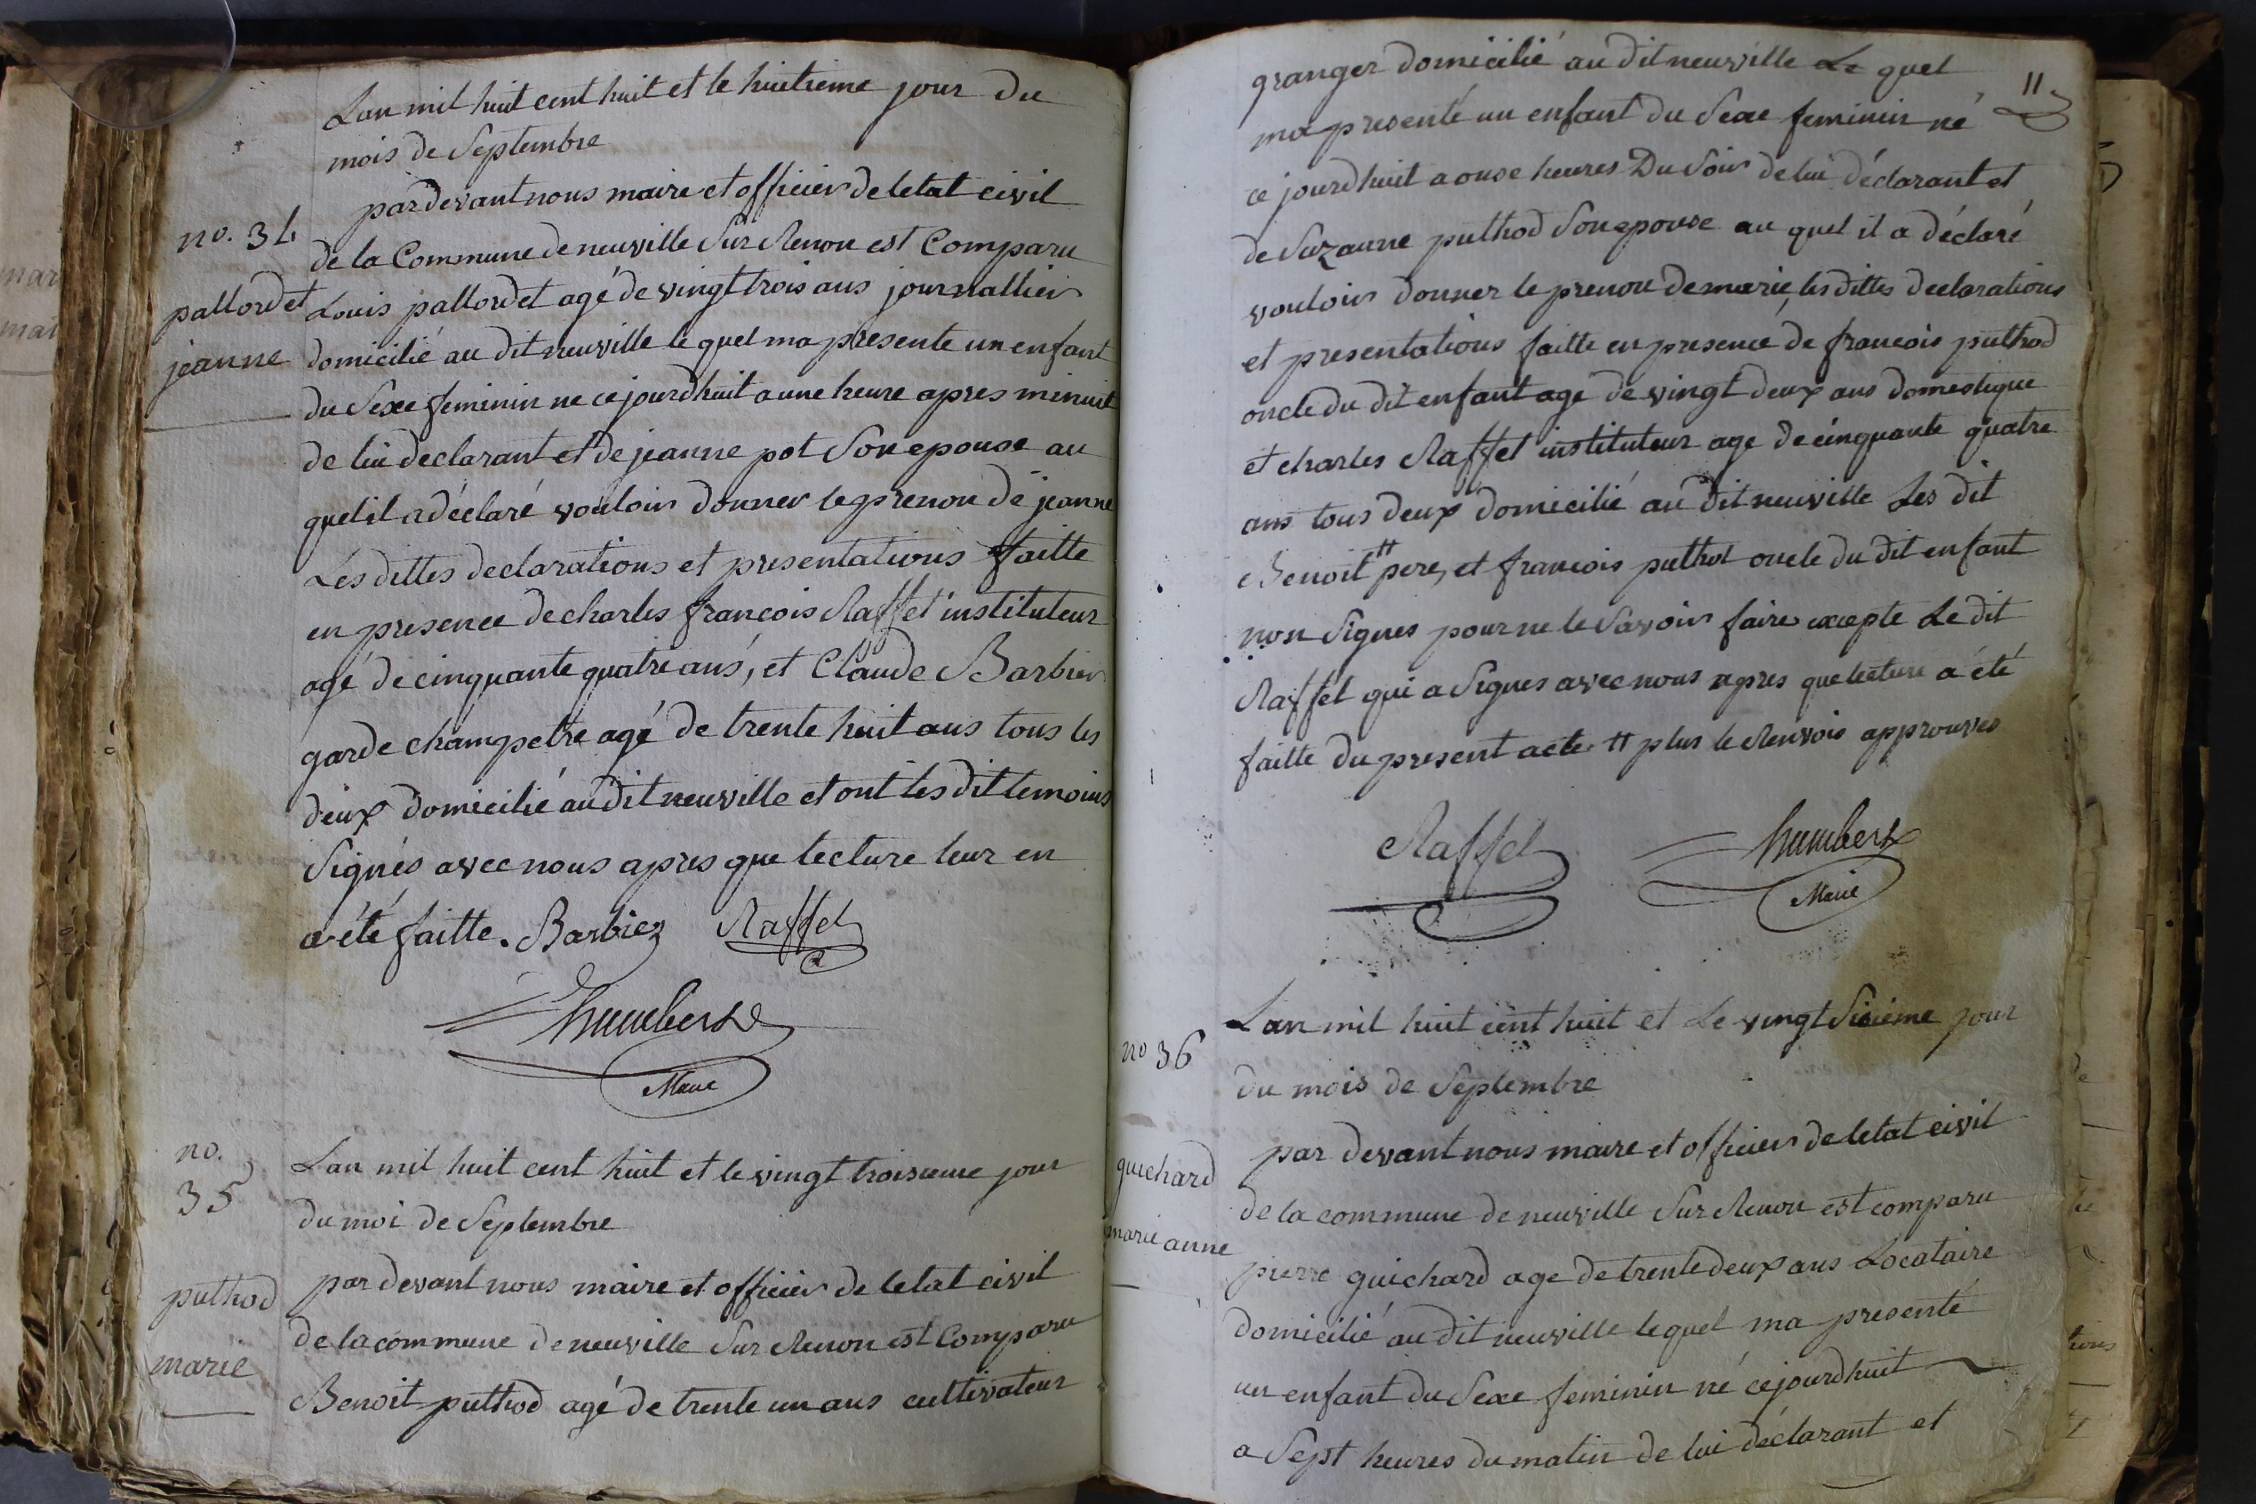 Lan mil huit cent huit et le huitieme jour du
mois de Septembre
pardevant nous maire et officier de letat civil
no. 34
de la Commune de neuville Sur Renon est Comparu
pallordet
Louis pallordet agé de vingt trois ans journallier
jeanne
domicilié au dit neuville le quel ma presente un enfant
du Sexe feminin ne ce jourdhuit a une heure apres minuit
de lui declarant et de jeanne pot Son epouse au
quel il a déclaré vouloir donner le prenon de jeanne
Les dittes declarations et presentations faitte
en presence de charles francois Raffet instituteur
agé de cinquante quatre ans, et Claude Barbier
garde champetre agé de trente huit ans tous les
deux domicilié au dit neuville et ont les dit temoins
Signés avec nous apres que lecture leur en
a été faitte. Barbier Raffet
humbert
Maire
no.
35
Lan mil huit cent huit et le vingt troisieme jour
du moi de Septembre
puthod
marie
par devant nous maire et officier de letat civil
de la commune de neuville Sur Renon est Comparu
Benoit puthod agé de trente un ans cultivateur
11
granger domicilié au dit neuville Le quel
ma presenté un enfant du Sexe feminin né
ce jourdhuit a onse heures Du Soir de lui déclarant et
de Suzanne puthod Son epouse au quel il a déclaré
vouloir donner le prenon de marie, les dittes declarations
et presentations faitte en presence de francois puthod
oncle du dit enfant age de vingt deux ans domestique
et charles Raffet instituteur age de cinquante quatre
ans tous deux domicilié au dit neuville Les dit
Benoit # pere, et francois puthod oncle du dit enfant
non Signes pour ne le Savoir faire excepte Le dit
Raffet qui a Signes avec nous apres que lecture a été
faitte du present acte # plus le Renvois approuves
Raffet humbert
Maire
no 36
Lan mil huit cent huit et Le vingt Sixième jour
du mois de Septembre
guichard
marie anne
par devant nous maire et officier de letat civil
de la commune de neuville Sur Renon est comparu
pierre guichard age de trente deux ans Locataire
domicilié au dit neuville le quel ma presenté
un enfant du Sexe feminin né ce jourdhuit
a Sept heures du matin de lui déclarant et